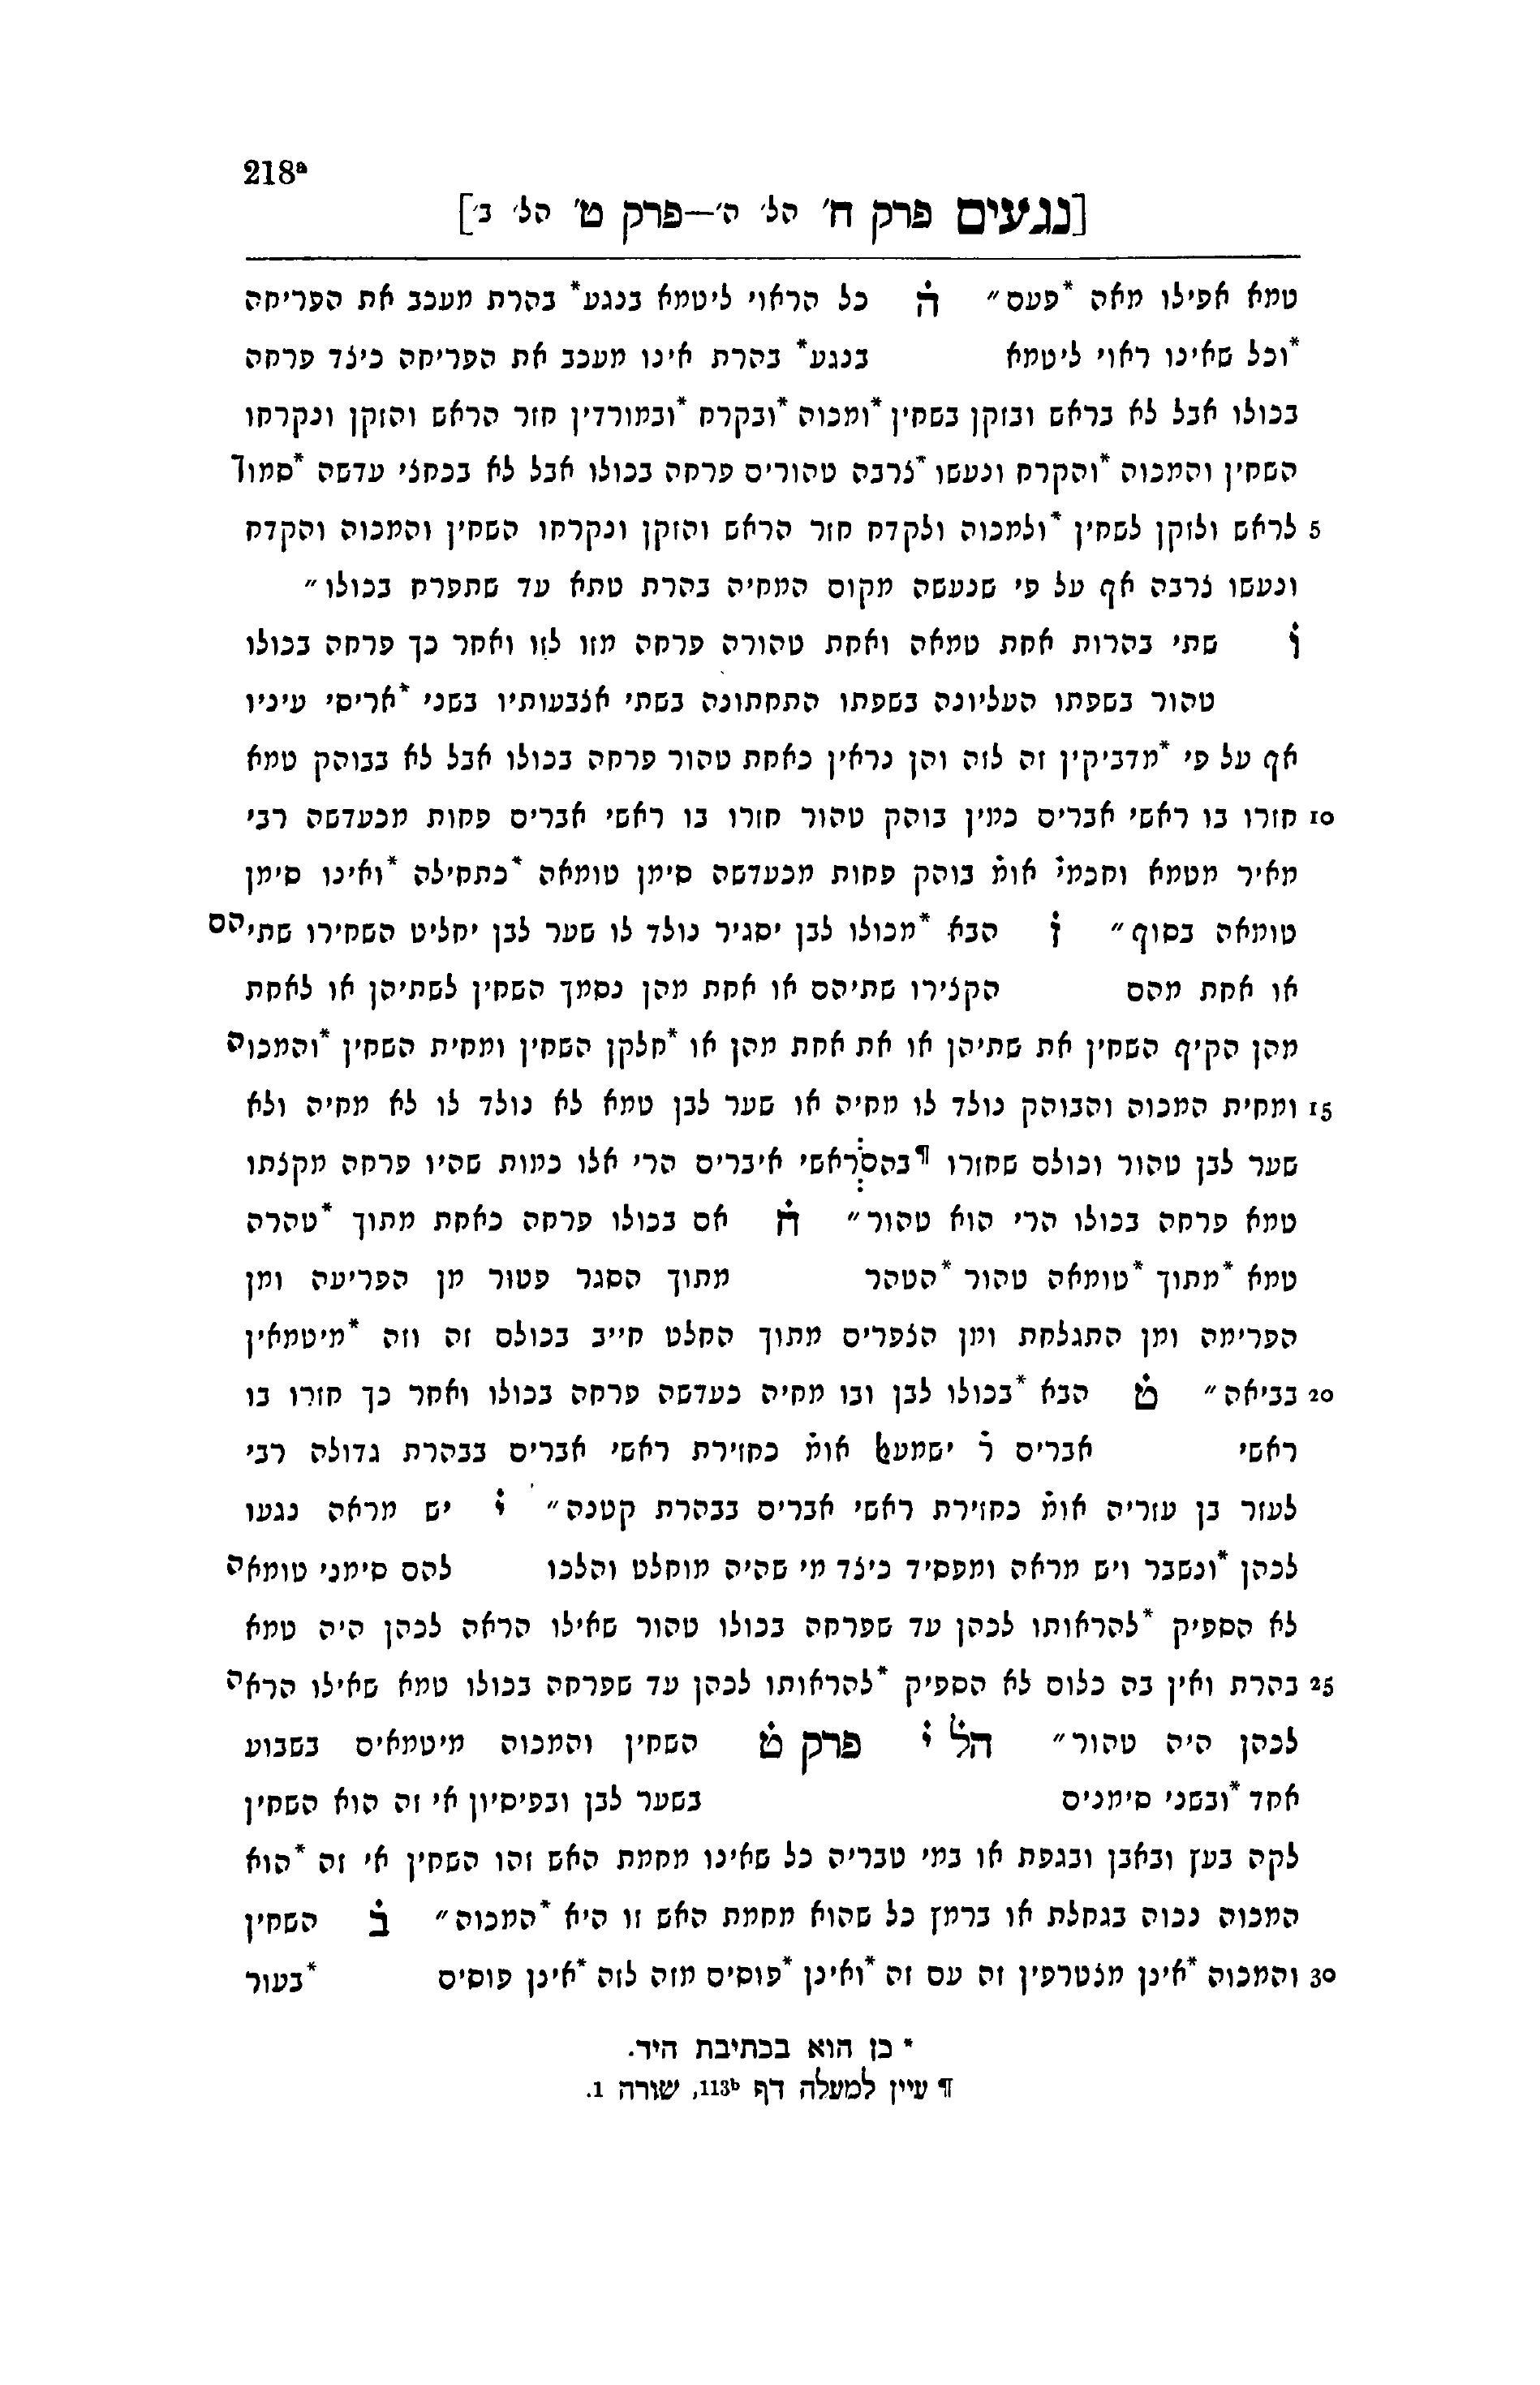 218ᵃ
[נגעים פרק ח' הל' ה'—פרק ט' הל' ב']
טמא אפילו מאה *פעם״ ה̇ כל הראוי ליטמא בנגע* בהרת מעכב את הפריחה
*וכל שאינו ראוי ליטמא בנגע* בהרת אינו מעכב את הפריחה כיצד פרחה
בכולו אבל לא בראש ובזקן בשחין *ומכוה *ובקרח *ובמורדין חזר הראש והזקן ונקרחו
השחין והמכוה *והקרח ונעשו *צרבה טהורים פרחה בכולו אבל לא בכחצי עדשה *סמוך
5 לראש ולזקן לשחין *ולמכוה ולקדח חזר הראש והזקן ונקרחו השחין והמכוה והקדח
ונעשו צרבה אף על פי שנעשה מקום המחיה בהרת טתא עד שתפרח בכולו״
ו̇ שתי בהרות אחת טמאה ואחת טהורה פרחה מזו לזו ואחר כך פרחה בכולו
טהור בשפתו העליונה בשפתו התחתונה בשתי אצבעותיו בשני *אריסי עיניו
אף על פי *מדביקין זה לזה והן נראין כאחת טהור פרחה בכולו אבל לא בבוהק טמא
10 חזרו בו ראשי אברים כמין בוהק טהור חזרו בו ראשי אברים פחות מכעדשה רבי
מאיר מטמא וחכמי̇ אומ̇ בוהק פחות מכעדשה סימן טומאה *כתחילה *ואינו סימן
טומאה בסוף״ ז̇ הבא *מכולו לבן יסגיר נולד לו שער לבן יחליט השחירו שתיהם
או אחת מהם הקצירו שתיהם או אחת מהן נסמך השחין לשתיהן או לאחת
מהן הקיף השחין את שתיהן או את אחת מהן או *חלקן השחין ומחית השחין *והמכוה
15 ומחית המכוה והבוהק נולד לו מחיה או שער לבן טמא לא נולד לו לא מחיה ולא
שער לבן טהור וכולם שחזרו ¶בהם⁝ראשי איברים הרי אלו כמות שהיו פרחה מקצתו
טמא פרחה בכולו הרי הוא טהור״ ח̇ אם בכולו פרחה כאחת מתוך *טהרה
טמא *מתוך *טומאה טהור *הטהר מתוך הסגר פטור מן הפריעה ומן
הפרימה ומן התגלחת ומן הצפרים מתוך החלט חייב בכולם זה וזה *מיטמאין
20 בביאה״ ט̇ הבא *בכולו לבן ובו מחיה כעדשה פרחה בכולו ואחר כך חזרו בו
ראשי אברים ר̇ ישמעאל אומ̇ כחזירת ראשי אברים בבהרת גדולה רבי
לעזר בן עזריה אומ̇ כחזירת ראשי אברים בבהרת קטנה״ י̇ יש מראה נגעו
לכהן *ונשבר ויש מראה ומפסיד כיצד מי שהיה מוחלט והלכו להם סימני טומאה
לא הספיק *להראותו לכהן עד שפרחה בכולו טהור שאילו הראה לכהן היה טמא
25 בהרת ואין בה כלום לא הספיק *להראותו לכהן עד שפרחה בכולו טמא שאילו הראה
לכהן היה טהור״ הל̇ י̇ פרק ט̇ השחין והמכוה מיטמאים בשבוע
אחד *ובשני סימנים בשער לבן ובפיסיון אי זה הוא השחין
לקה בעץ ובאבן ובגפת או במי טבריה כל שאינו מחמת האש זהו השחין אי זה *הוא
המכוה נכוה בגחלת או ברמץ כל שהוא מחמת האש זו היא *המכוה״ ב̇ השחין
30 והמכוה *אינן מצטרפין זה עם זה *ואינן *פוסים מזה לזה *אינן פוסים *בעור
* כן הוא בכתיבת היד.
¶ עיין למעלה דף 113ᵇ, שורה 1.